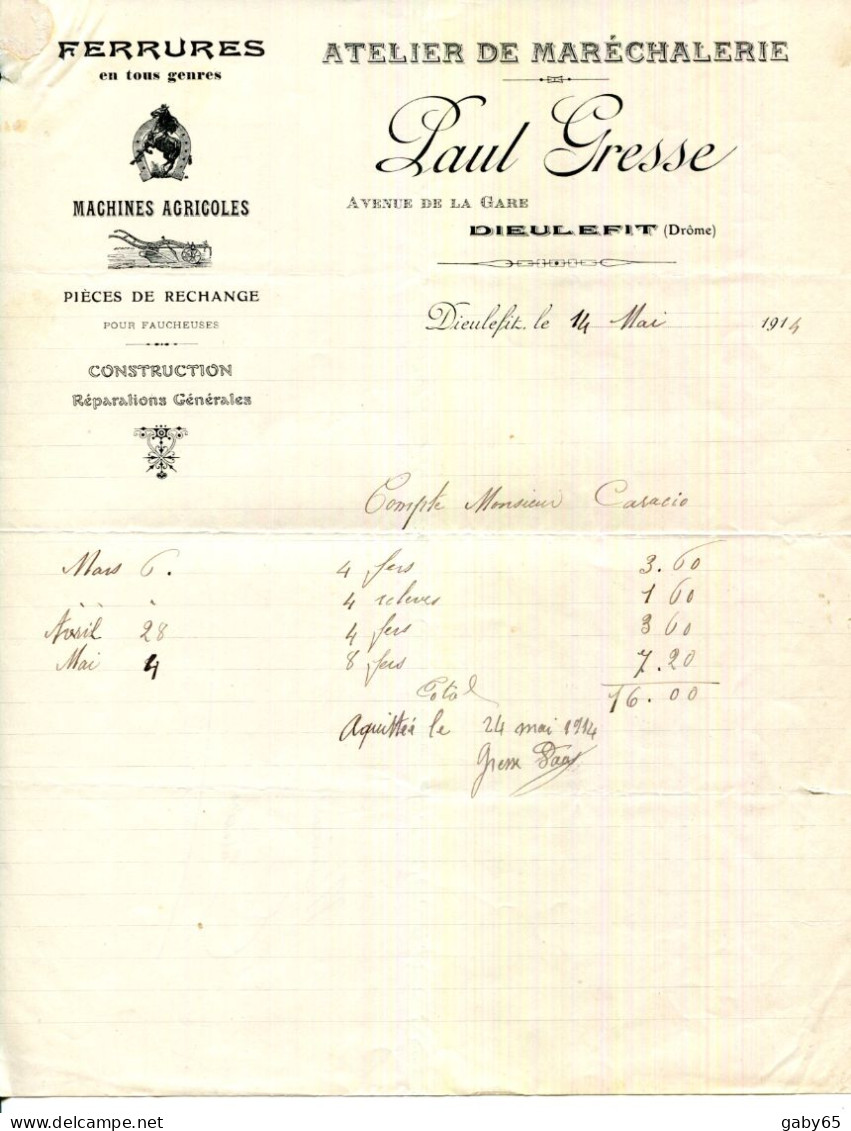 FERRURES
en tous genres
MACHINES AGRICOLES
PIÈCES DE RECHANGE
POUR FAUCHEUSES
CONSTRUCTION
Réparations Générales
ATELIER DE MARÉCHALERIE
Paul Gresse
AVENUE DE LA GARE
DIEULEFIT (Drôme)
Dieulefit, le 14 Mai 1914
Compte Monsieur Caracio
Mars 6. 4 fers 3.60
4 releves 1 60
Avril 28 4 fers 3 60
Mai 4 8 fers 7.20
Total 16.00
Aquitté le 24 mai 1914
Gresse Paul
gaby65